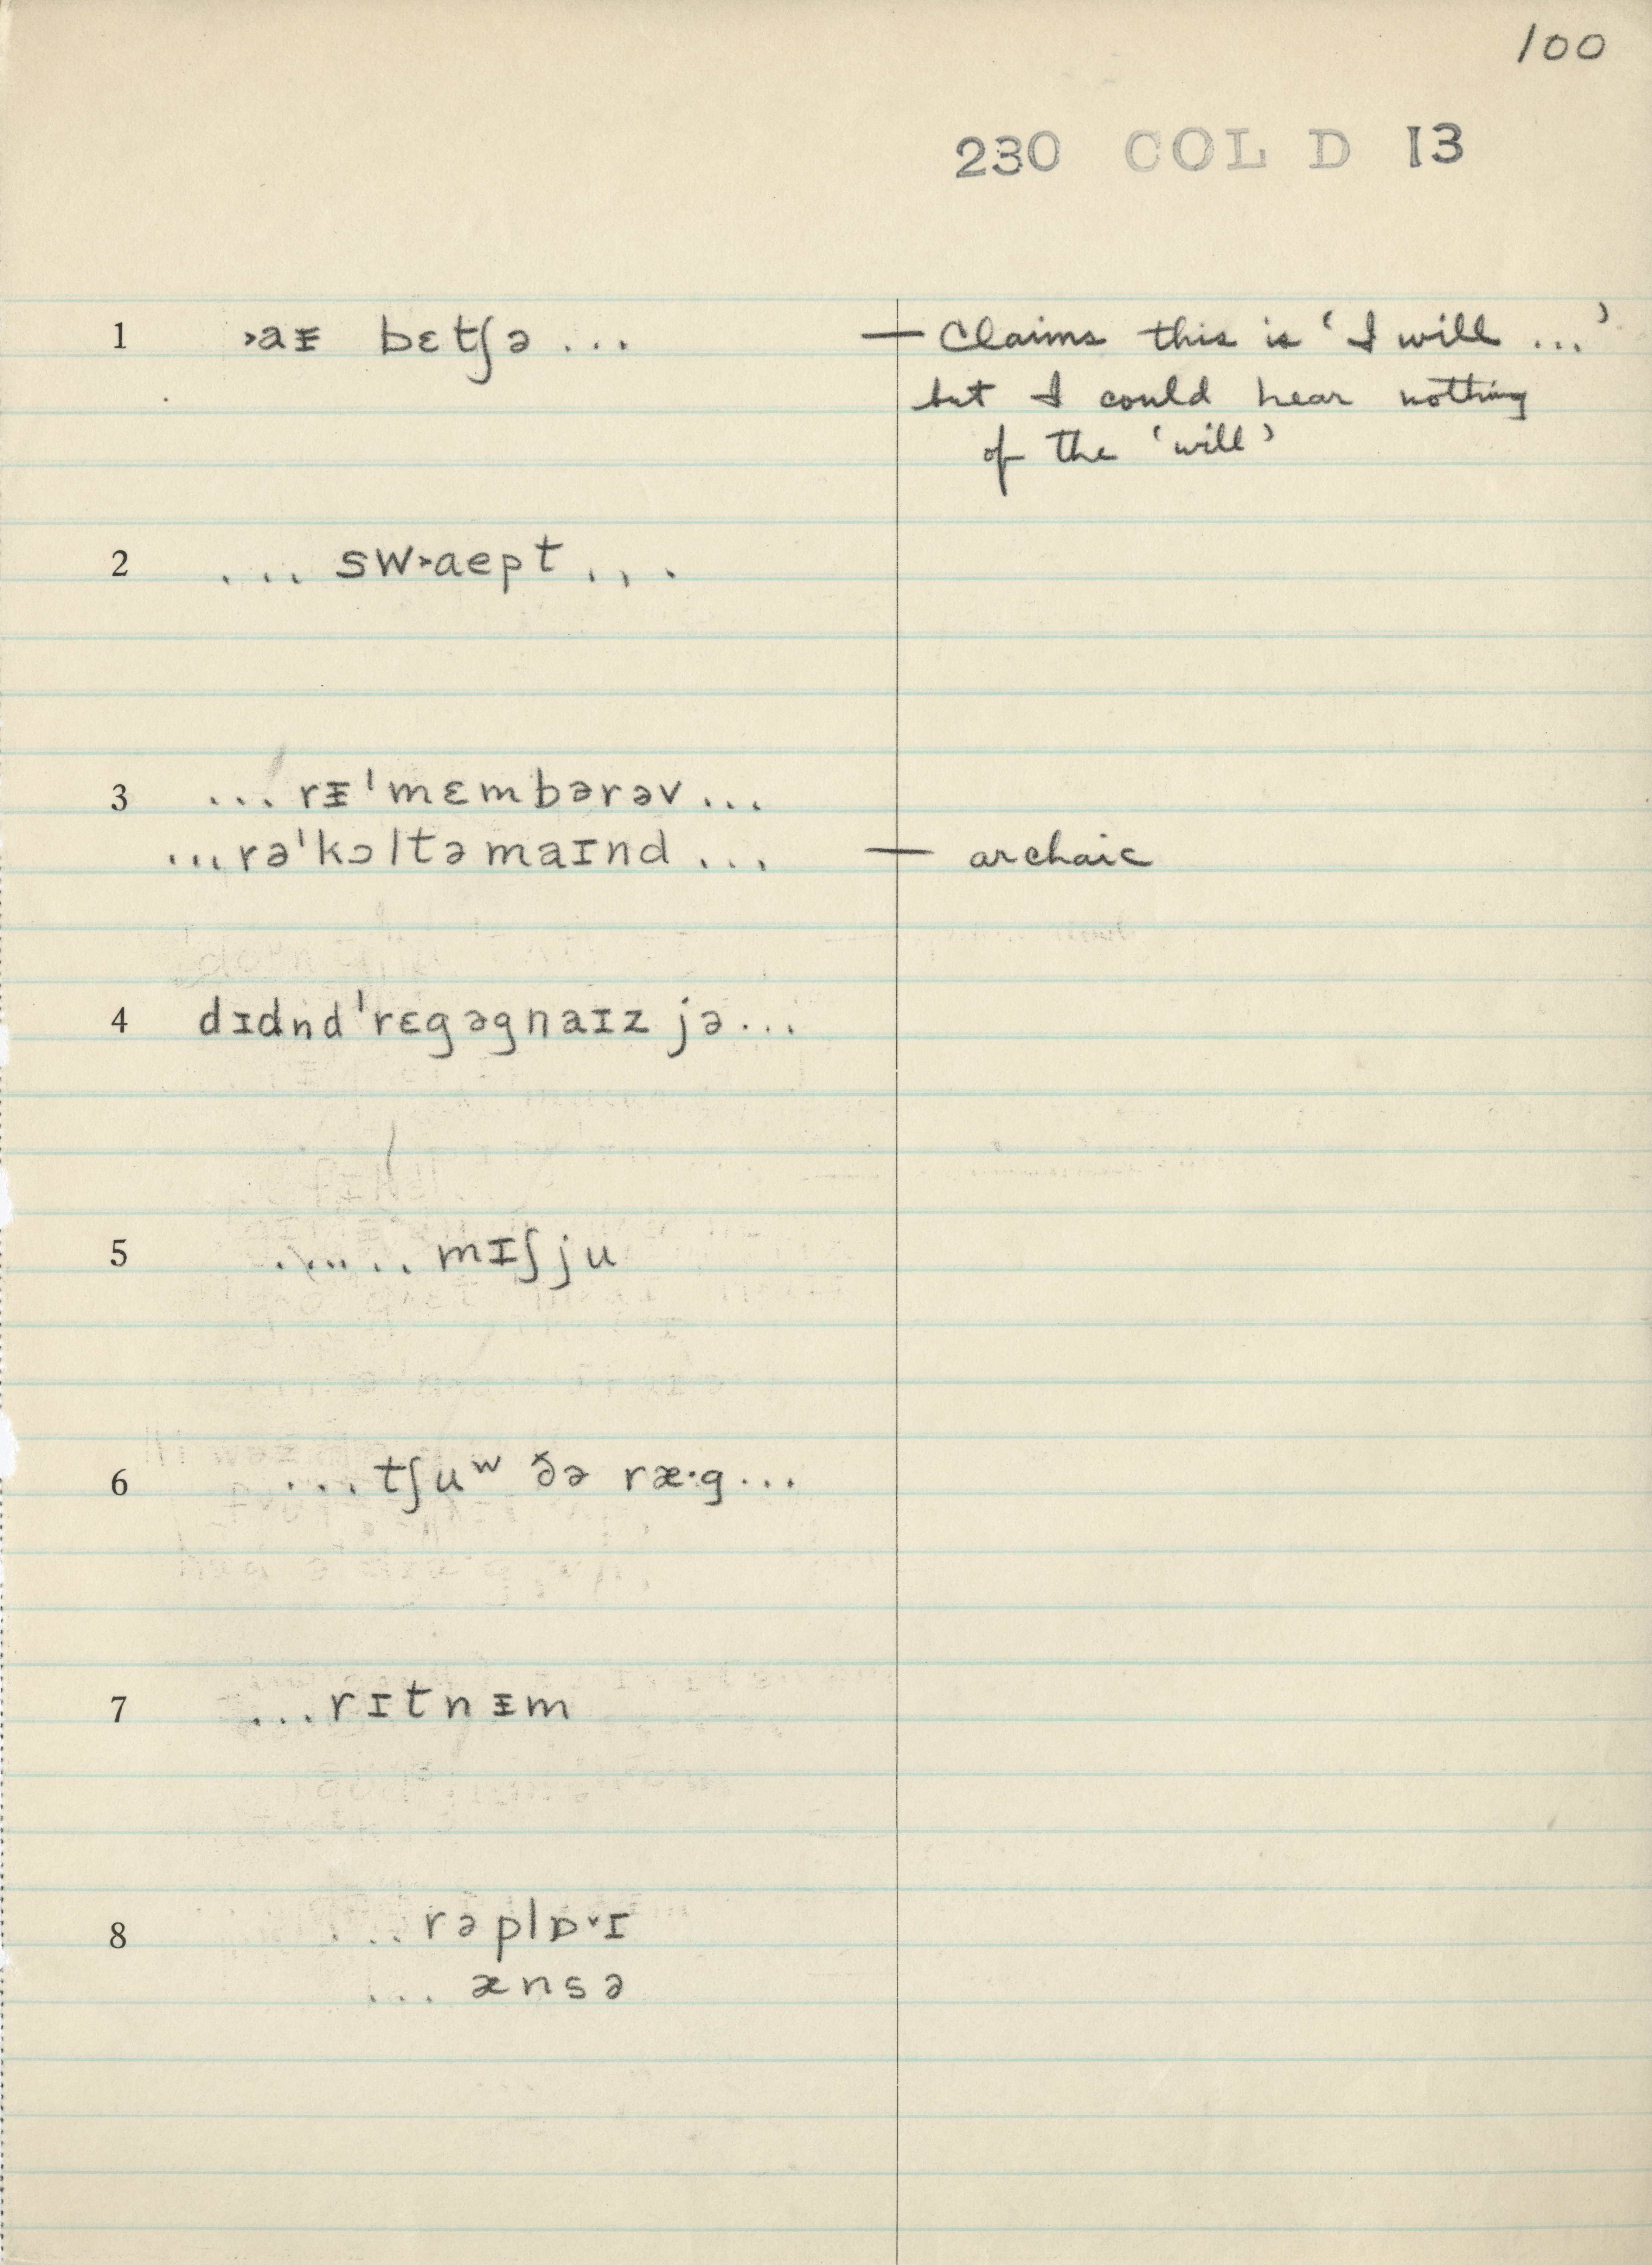 100
230 COL D 13
1 ˃aᵻ bɛtʃə ... — Claims this is ‘I will ...’
but I could hear nothing
of the ‘will’
2 ... sw˃aept ...
3 ... rᵻˈmɛmbərəv ...
... rəˈkɔltəmaɪnd ... — archaic
4 dɪdndˈrɛgəgnaɪz jə ...
5 ...... mɪʃju
6 ... tʃuʷ ðə ræ·g ...
7 ... rɪtnᵻm
8 ... rəplɒ˅ɪ
... ænsə